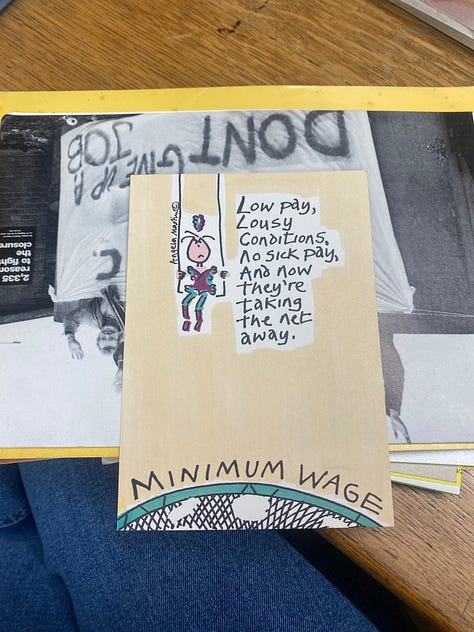 Angela Martin ©
Low pay,
Lousy
Conditions,
no sick pay,
And now
they're
taking
the net
away.
MINIMUM WAGE
DONT GIVE UP A
JOB
C.
2,335
reason
to figh
the
closure